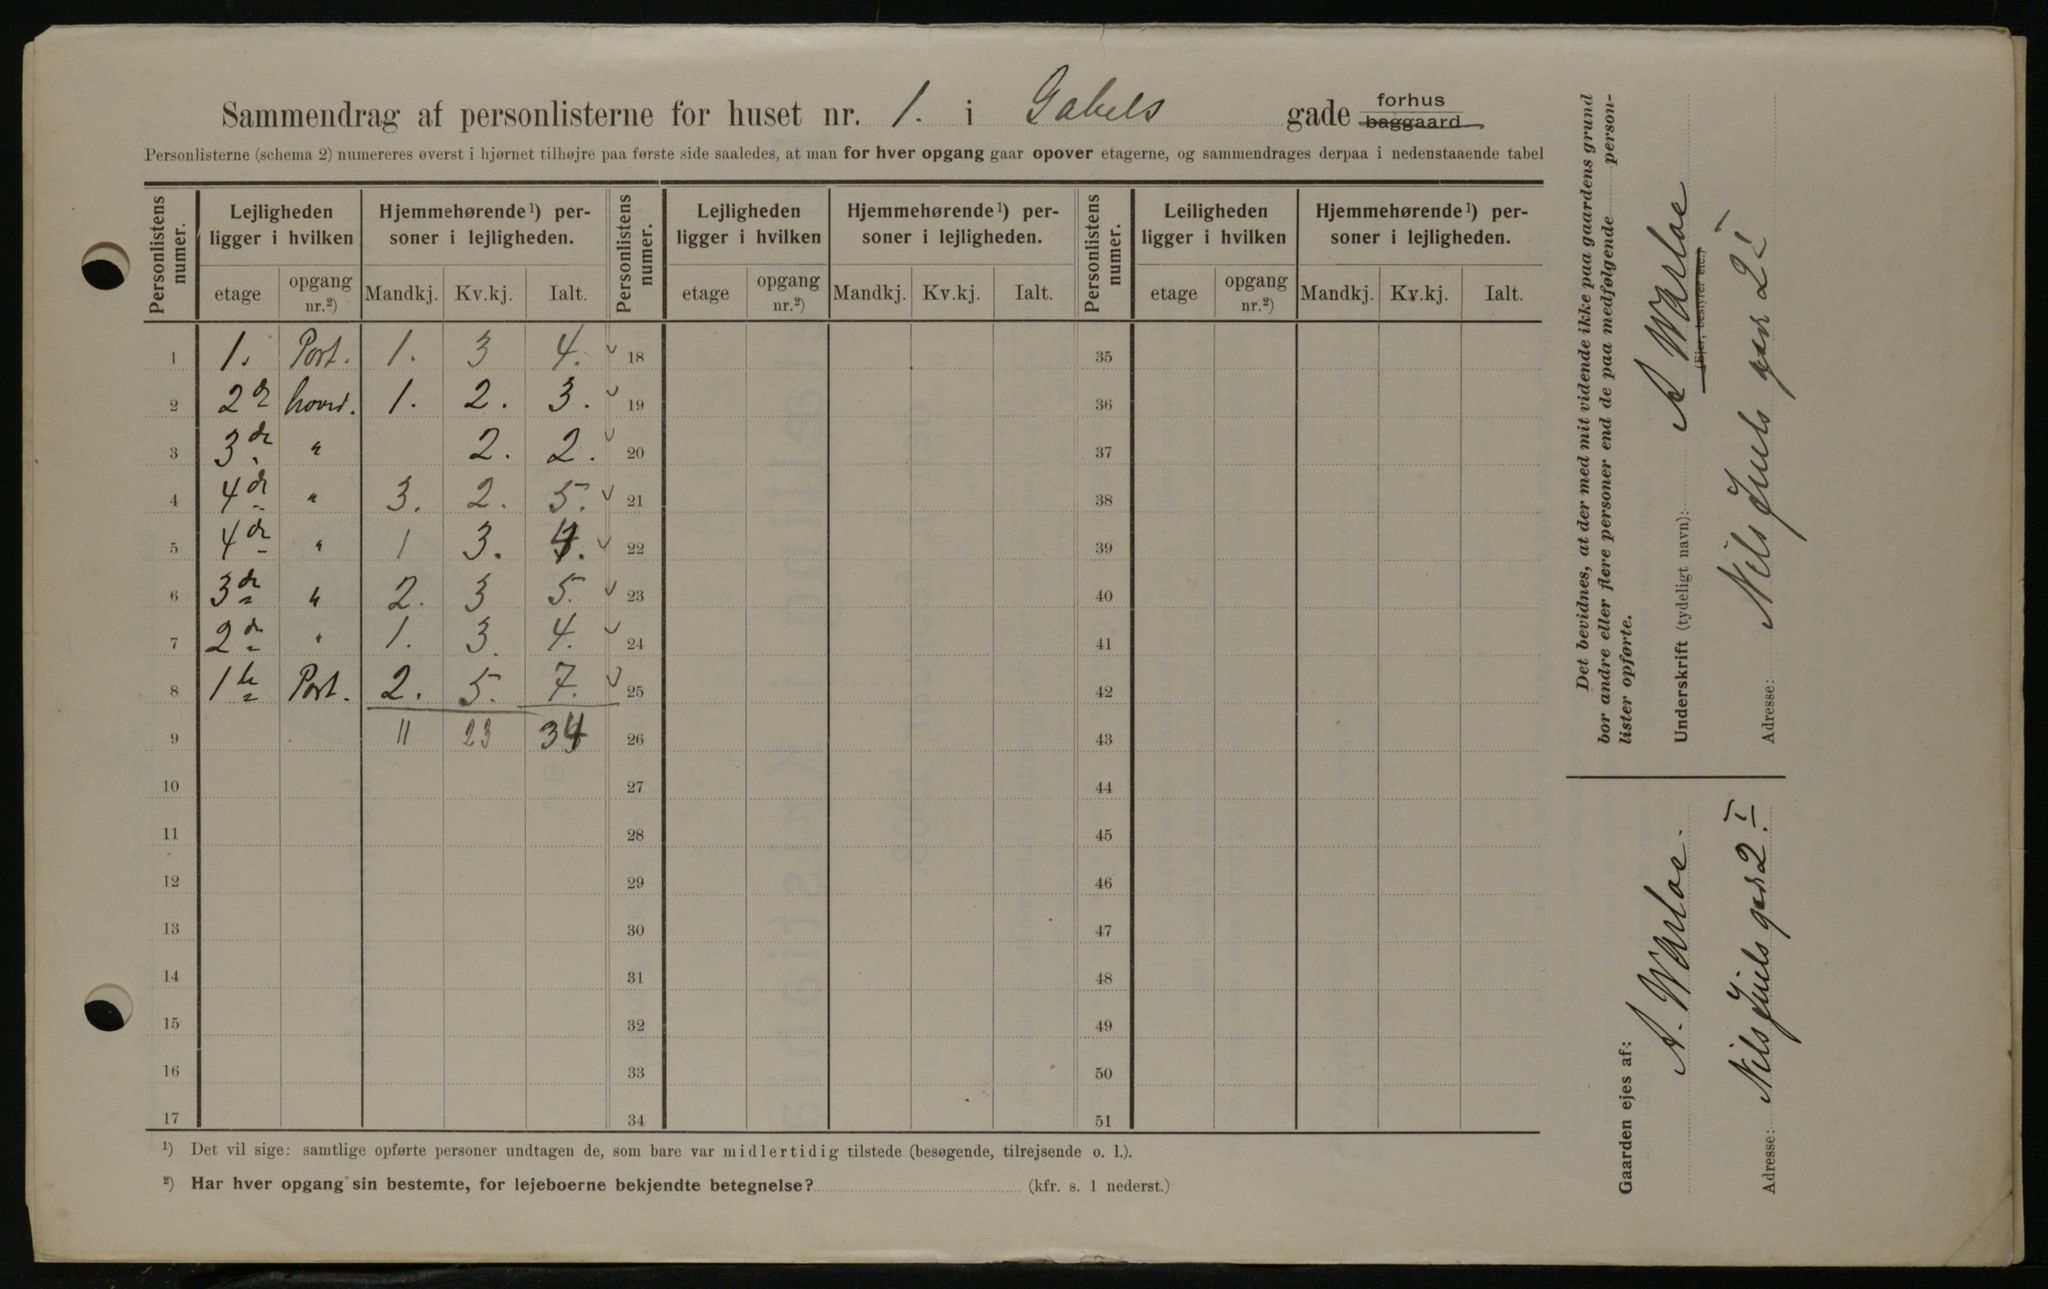 Sammendrag af personlisterne for huset nr. 1. i Gabels gade forhus
baggaard
Personlisterne (schema 2) numereres øverst i hjørnet tilhøjre paa første side saaledes, at man for hver opgang gaar opover etagerne, og sammendrages derpaa i nedenstaaende tabel
Personlistens numer. Lejligheden ligger i hvilken Hjemmehørende¹) personer i lejligheden. Personlistens numer. Lejligheden ligger i hvilken Hjemmehørende¹) personer i lejligheden. Personlistens numer. Leiligheden ligger i hvilken Hjemmehørende¹) personer i lejligheden.
etage opgang nr.²) Mandkj. Kv.kj. Ialt. etage opgang nr.²) Mandkj. Kv.kj. Ialt. etage opgang nr.²) Mandkj. Kv.kj. Ialt.
1 1. Port. 1. 3 4. 18 35
2 2 1. 2. 3. 19 36
3 3de " 2. 2. 20 37
4 4de " 3. 2. 5. 21 38
5 4de " 1 3. 4. 22 39
6 3de " 2. 3 5. 23 40
7 2de " 1. 3. 4. 24 41
8 1te Port. 2. 5. 7. 25 42
9 11 23 34 26 43
10 27 44
11 28 45
12 29 46
13 30 47
14 31 48
15 32 49
16 33 50
17 34 51
¹) Det vil sige: samtlige opførte personer undtagen de, som bare var midlertidig tilstede (besøgende, tilrejsende o. l.).
²) Har hver opgang sin bestemte, for lejeboerne bekjendte betegnelse? (kfr. s. 1 nederst.)
Det bevidnes, at der med mit vidende ikke paa gaardens grund
bor andre eller flere personer end de paa medfølgende personlister opførte.
Underskrift (tydeligt navn): A Warloe
(Ejer, bestyrer etc.)
Adresse: Nils Juels gade 2 I
Gaarden ejes af:
A. Warloe.
Adresse: Nils Juels gade 2. I